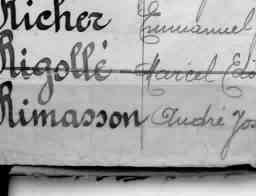 Richer Emmanuel
Rigollé Marcel
Rimasson André